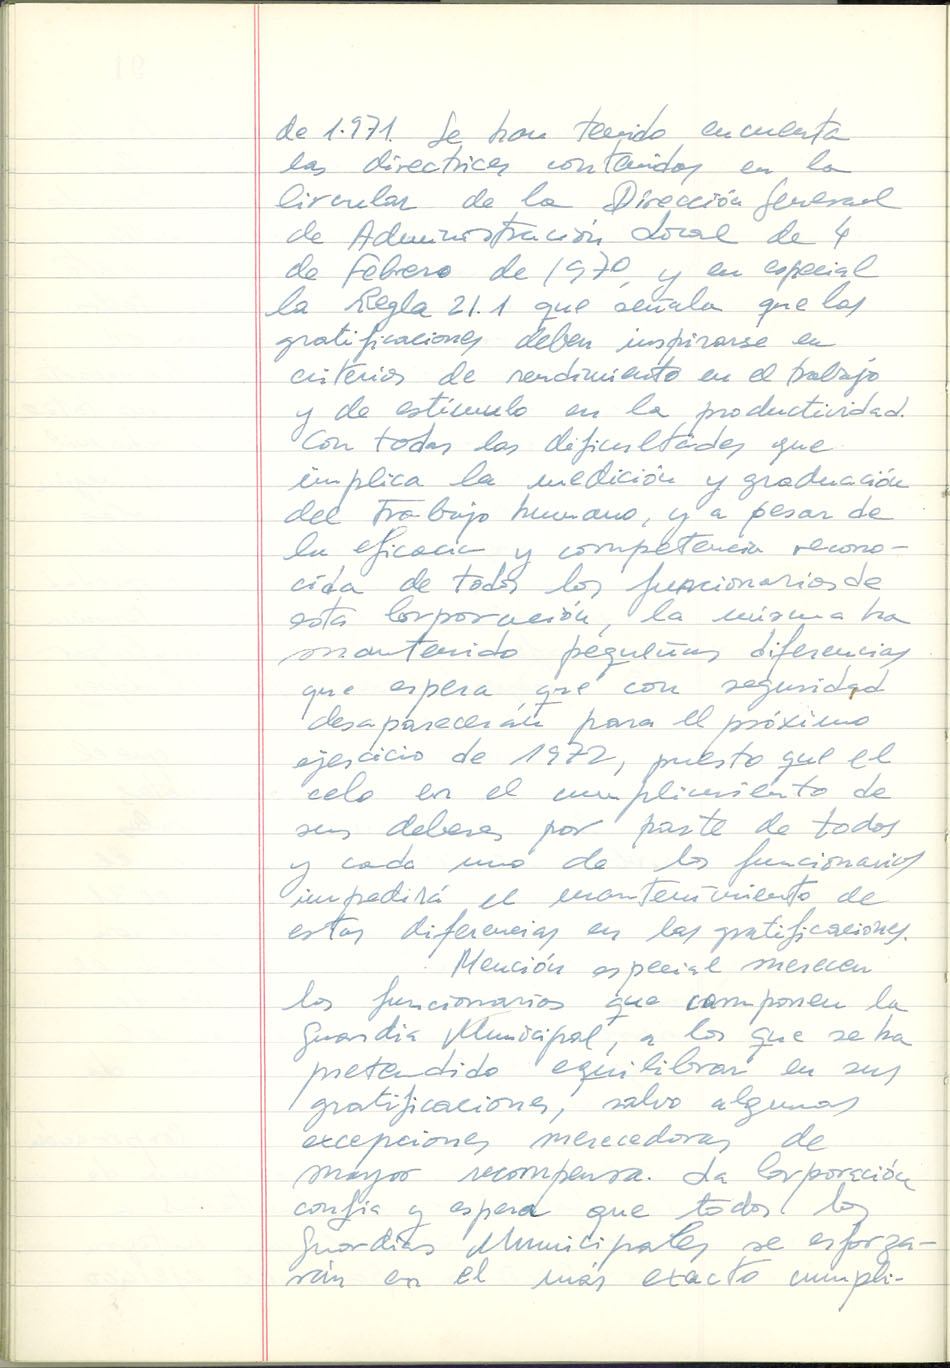 de 1.971. Se han tenido en cuenta
las directrices contenidas en la
Circular de la Dirección General
de Administración Local de 4
de Febrero de 1970, y en especial
la Regla 21.1 que señala que las
gratificaciones deben inspirarse en
criterios de rendimiento en el trabajo
y de estímulo en la productividad.
Con todas las dificultades que
implica la medición y graduación
del Trabajo humano, y a pesar de
la eficacia y competencia recono-
cida de todos los funcionarios de
esta Corporación, la misma ha
mantenido pequeñas diferencias
que espera que con seguridad
desaparecerán para el próximo
ejercicio de 1972, puesto que el
celo en el cumplimiento de
sus deberes por parte de todos
y cada uno de los funcionarios
impedirá el mantenimiento de
estas diferencias en las gratificaciones.
Mención especial merecen
los funcionarios que componen la
Guardia Municipal, a los que se ha
pretendido equilibrar en sus
gratificaciones, salvo algunas
excepciones merecedoras de
mayor recompensa. La Corporación
confía y espera que todos los
Guardias Municipales se esforza-
rán en el más exacto cumpli-